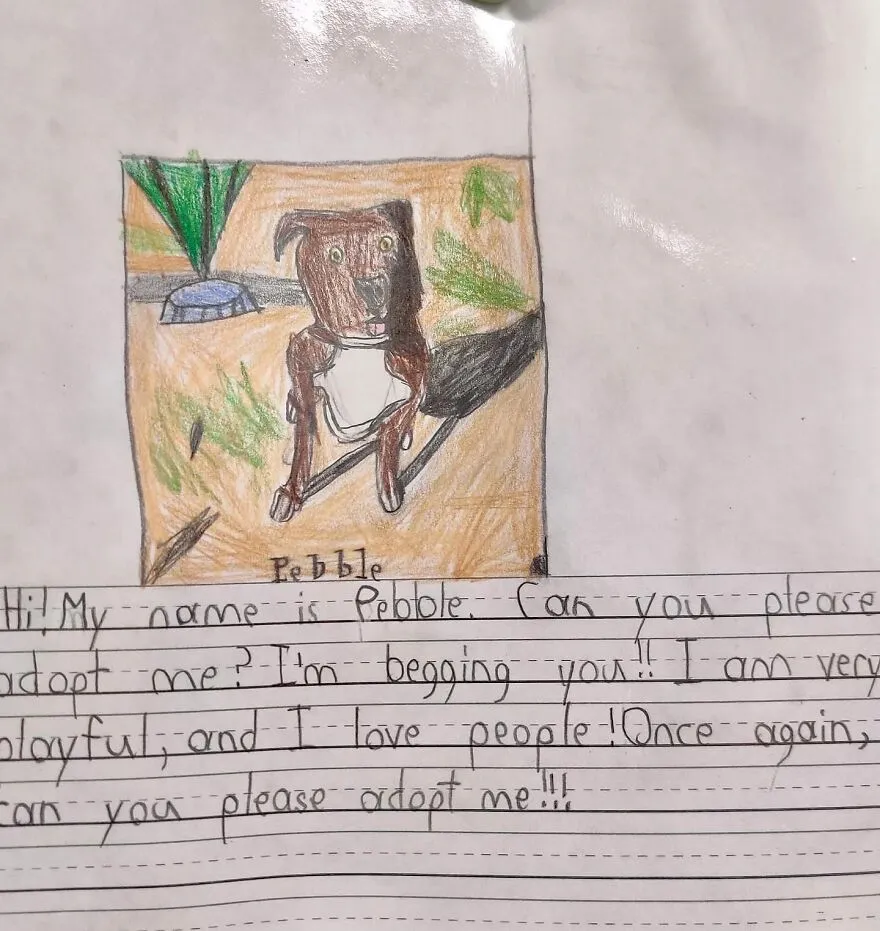 Pebble
Hi! My name is Pebble. Can you please
adopt me? I'm begging you!! I am very
playful, and I love people! Once again,
can you please adopt me!!!